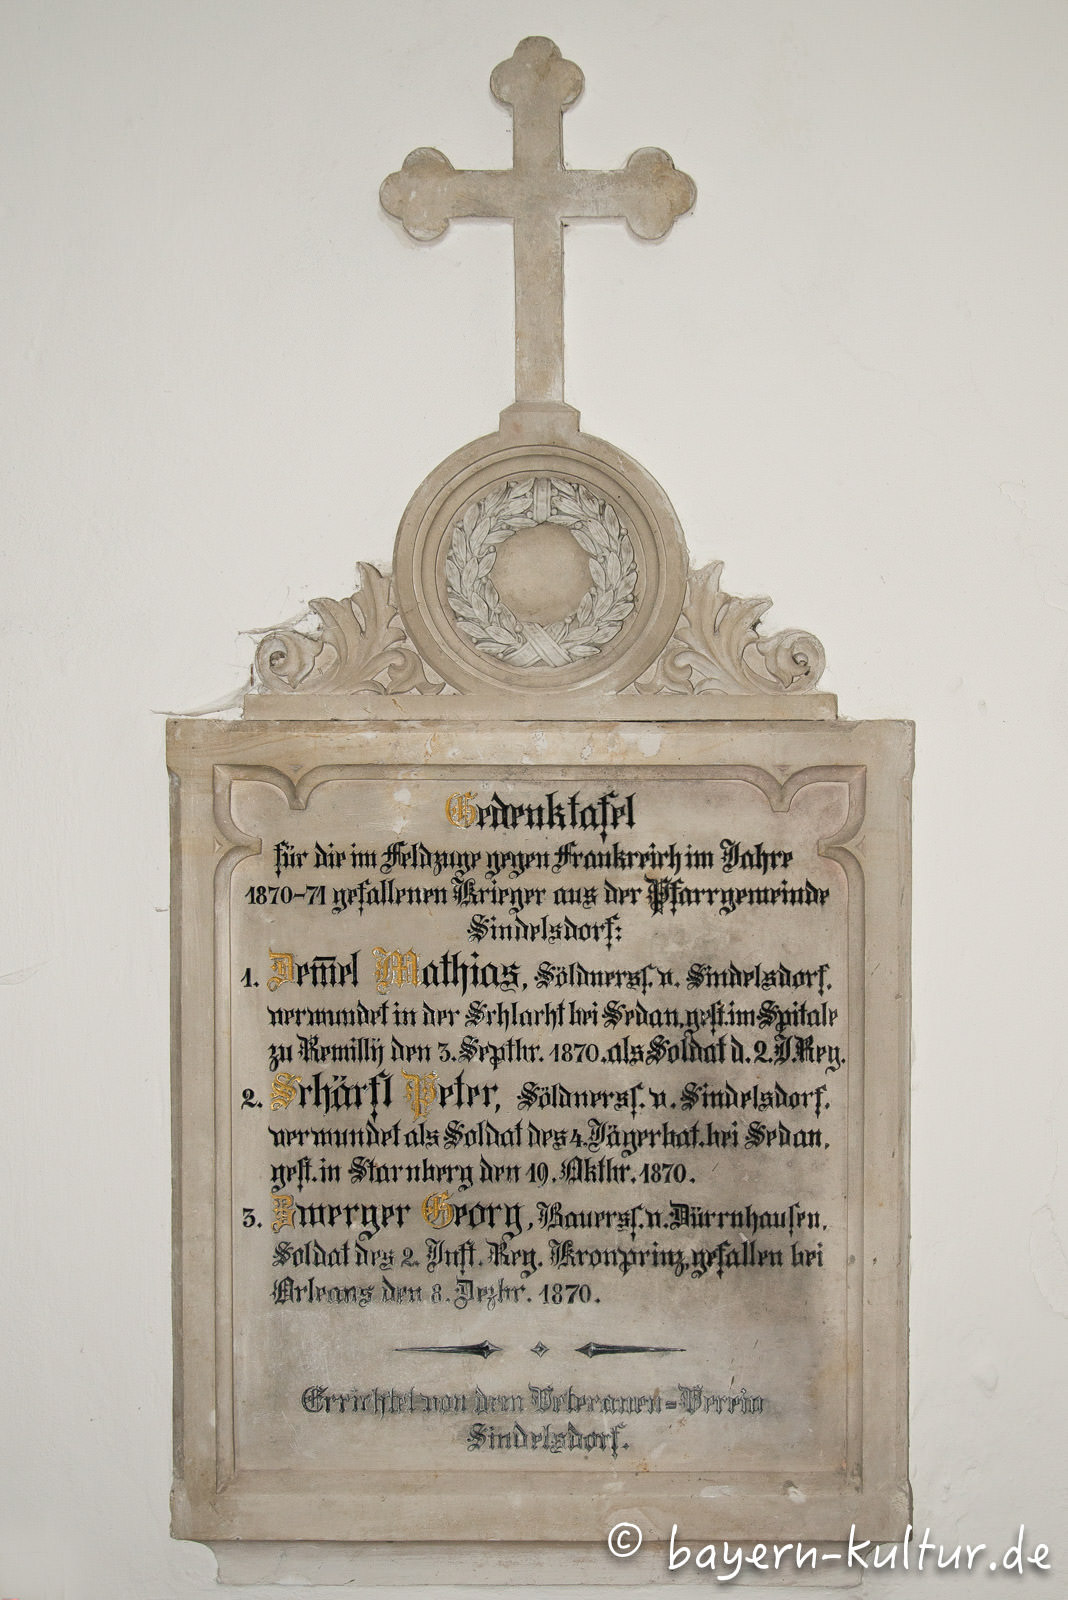 Gedenktafel
für die im Feldzuge gegen Frankreich im Jahre
1870-71 gefallenen Krieger aus der Pfarrgemeinde
Sindelsdorf:
1. Dem̅el Mathias, Söldnerss. v. Sindelsdorf,
verwundet in der Schlacht bei Sedan, gest. im Spitale
zu Remilly den 3. Septbr. 1870, als Soldat d. 2. J. Reg.
2. Schärfl Peter, Söldnerss. v. Sindelsdorf,
verwundet als Soldat des 4. Jägerbat. bei Sedan,
gest. in Starnberg den 19. Oktbr. 1870.
3. Zwerger Georg, Bauerss. v. Dürrnhausen,
Soldat des 2. Inft. Reg. Kronprinz, gefallen bei
Orleans den 8. Dezbr. 1870.
Errichtet von dem Veteranen=Verein
Sindelsdorf.
© bayern-kultur.de